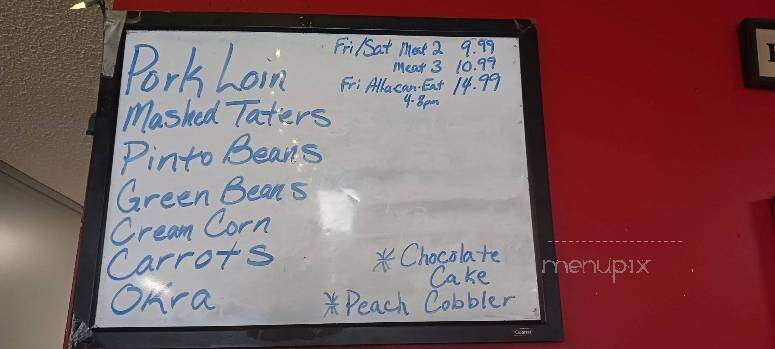 Fri/Sat Meat 2 9.99
Meat 3 10.99
Fri Allucan-Eat 14.99
4-8pm
Pork Loin
Mashed Taters
Pinto Beans
Green Beans
Cream Corn
Carrots
Okra
* Chocolate
Cake
* Peach Cobbler
menupix